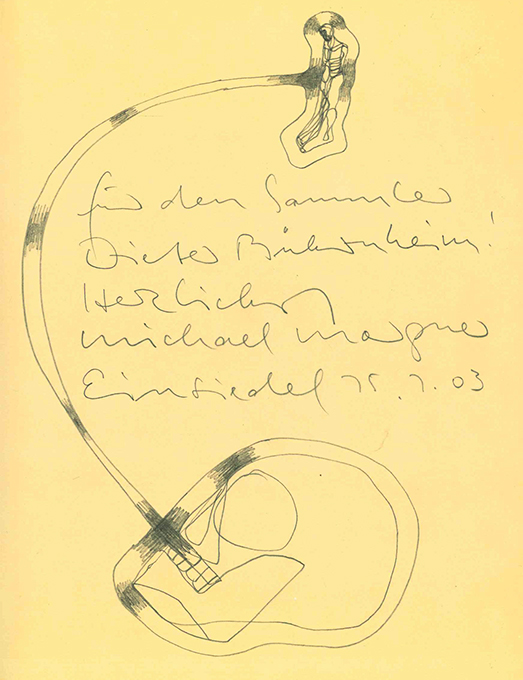 für den Sammler
Dieter Bührnheim!
Herzlichst
michael morgner
Einsiedel